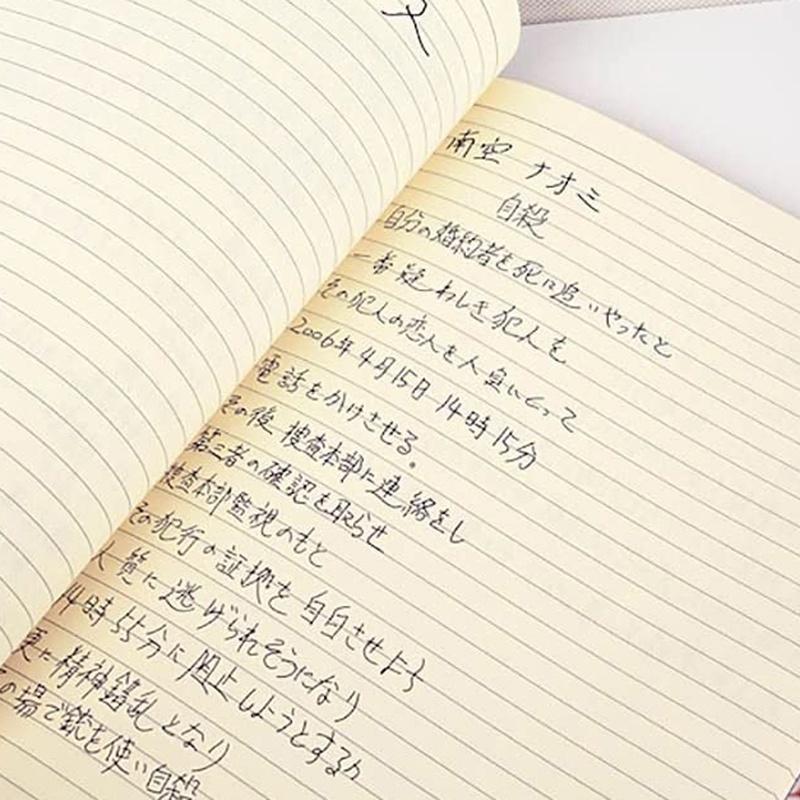 南空 ナオミ
自殺
自分の婚約者を死に追いやったと
一番疑わしき犯人を
その犯人の恋人を人質にとって
2006年4月15日 14時15分
電話をかけさせる。
その後、捜査本部に連絡をし
第三者の確認を取らせ
捜査本部監視のもと
その犯行の証拠を自白させようと
人質に逃げられそうになり
14時55分に阻止しようとするが
更に精神錯乱となり
の場で銃を使い自殺